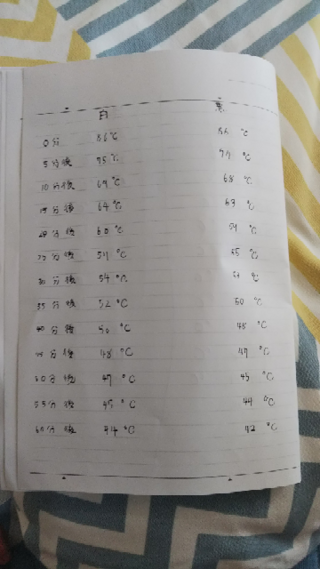 白 黒
0分 86℃ 86℃
5分後 75℃ 74℃
10分後 69℃ 68℃
15分後 64℃ 63℃
20分後 60℃ 59℃
25分後 ℃ 55℃
30分後 54℃ ℃
35分後 52℃ 50℃
40分後 50℃ ℃
45分後 48℃ 47℃
50分後 47℃ 45℃
55分後 45℃ 44℃
60分後 44℃ ℃